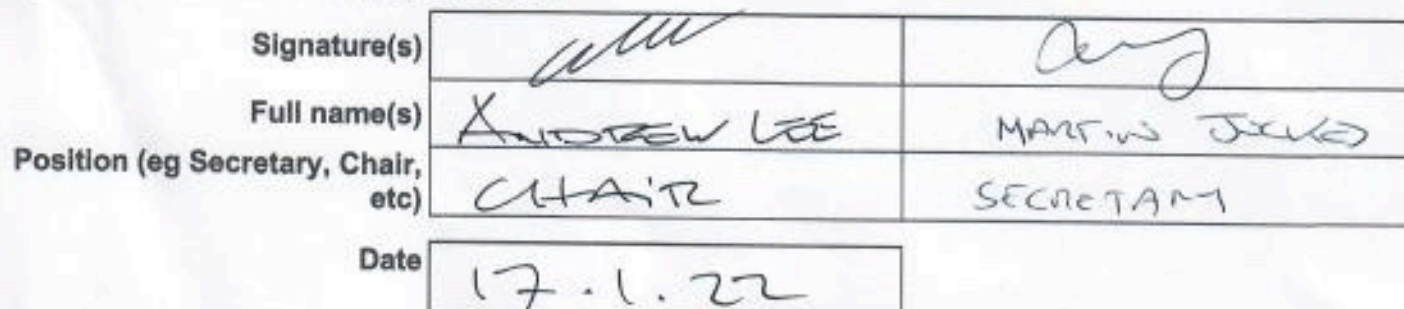 Signature(s)
Full name(s) ANDREW LEE MARTIN
Position (eg Secretary, Chair,
etc) CHAIR SECRETARY
Date 17.1.22